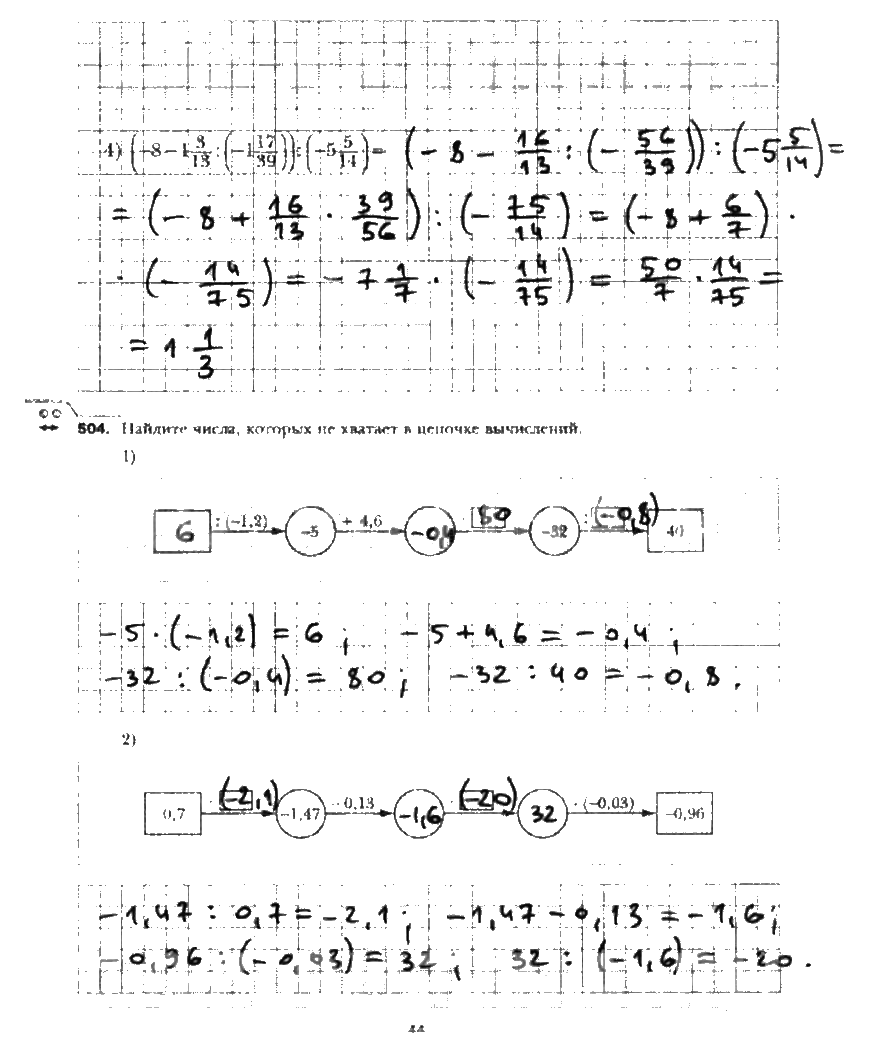 4) (-8 - 1 3/13 : (-1 17/39)) : (-5 5/14) = (-8 - 16/13 : (-56/39)) : (-5 5/14) =
= (-8 + 16/13 · 39/56) : (-75/14) = (-8 + 6/7) ·
· (-14/75) = -7 1/7 · (-14/75) = 50/7 · 14/75 =
= 1 1/3
504. Найдите числа, которых не хватает в цепочке вычислений.
1)
6 : (-1,2) -5 + 4,6 -0,4 · 80 -32 : (-0,8) 40
-5 · (-1,2) = 6 ; -5 + 4,6 = -0,4 ;
-32 : (-0,4) = 80 ; -32 : 40 = -0,8 .
2)
0,7 · (-2,1) -1,47 - 0,13 -1,6 · (-20) 32 · (-0,03) -0,96
-1,47 : 0,7 = -2,1 ; -1,47 - 0,13 = -1,6 ;
-0,96 : (-0,03) = 32 ; 32 : (-1,6) = -20 .
44